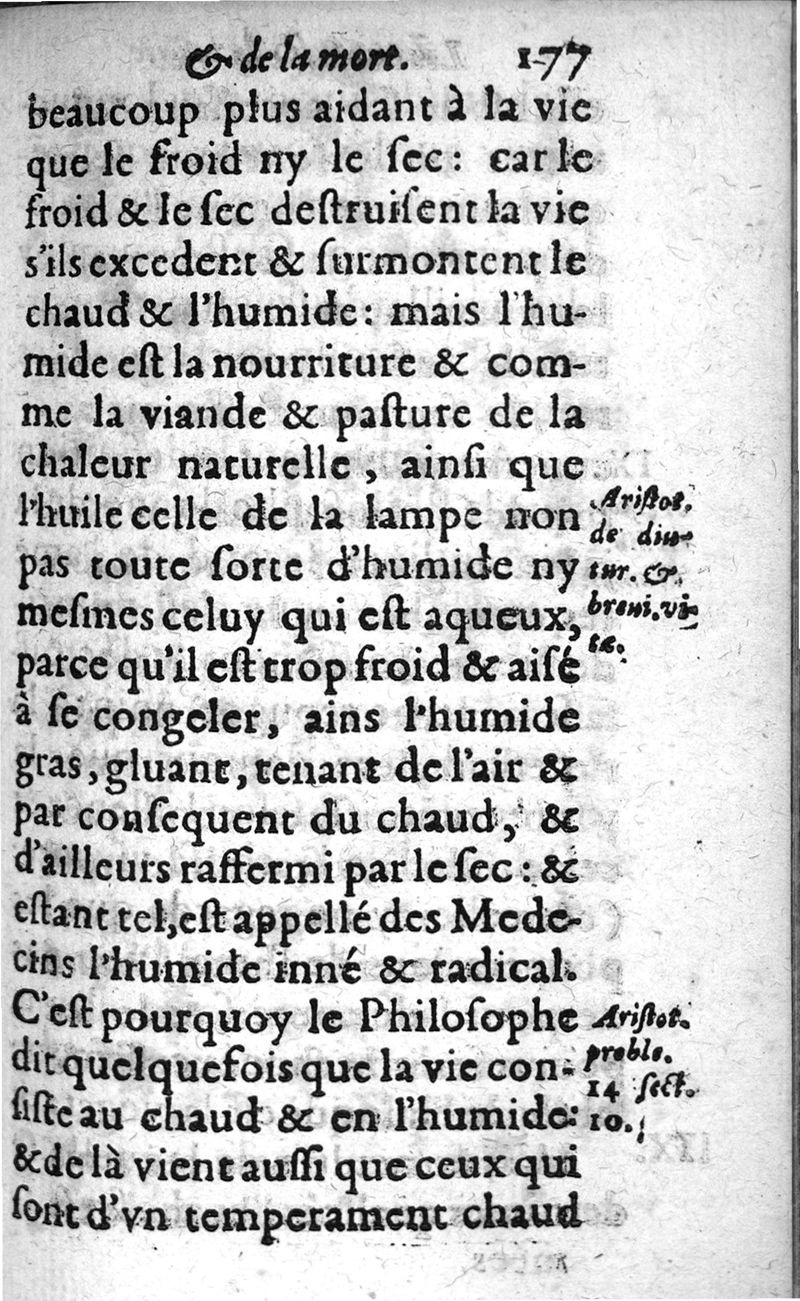 & de la mort. 177
beaucoup plus aidant à la vie
que le froid ny le ſec: car le
froid & le ſec deſtruiſent la vie
s'ils excedent & ſurmontent le
chaud & l'humide: mais l'hu-
mide eſt la nourriture & com-
me la viande & paſture de la
chaleur naturelle, ainſi que
l'huile celle de la lampe non
pas toute ſorte d'humide ny
meſmes celuy qui eſt aqueux,
parce qu'il eſt trop froid & aiſé
à ſe congeler, ains l'humide
gras, gluant, tenant de l'air &
par conſequent du chaud, &
d'ailleurs raffermi par le ſec: &
eſtant tel, eſt appellé des Mede-
cins l'humide inné & radical.
C'eſt pourquoy le Philoſophe
dit quelquefois que la vie con-
ſiſte au chaud & en l'humide:
& de là vient auſſi que ceux qui
ſont d'vn temperament chaud
Ariſtot.
de diu-
tur. &
breui. vi-
tæ.
Ariſtot.
proble.
14 ſect.
10.